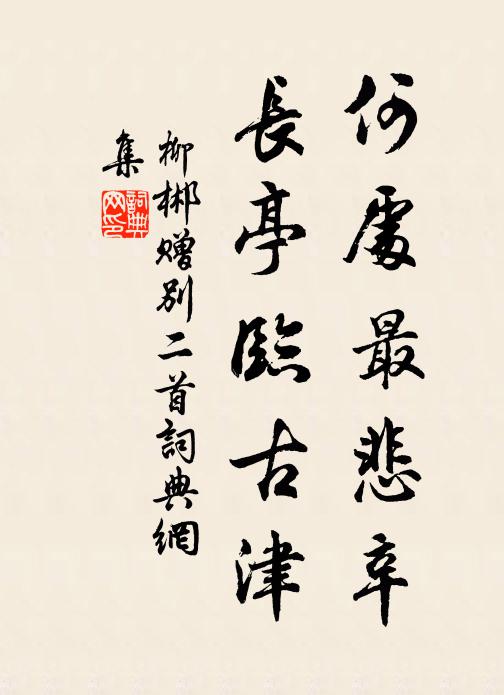 何處最悲辛
長亭臨古津
柳郴赠別二首詞典網
集
詞典
网印